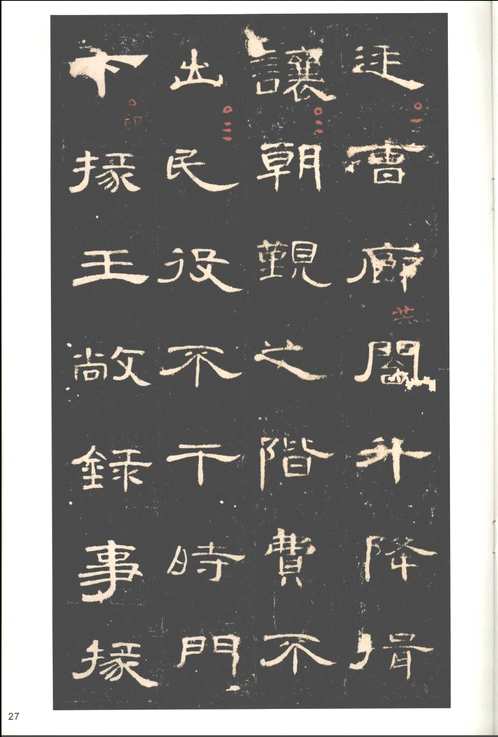 廷曹廊閣升降揖
讓朝覲之階費不
出民役不干時門
下掾王敞録事掾
27